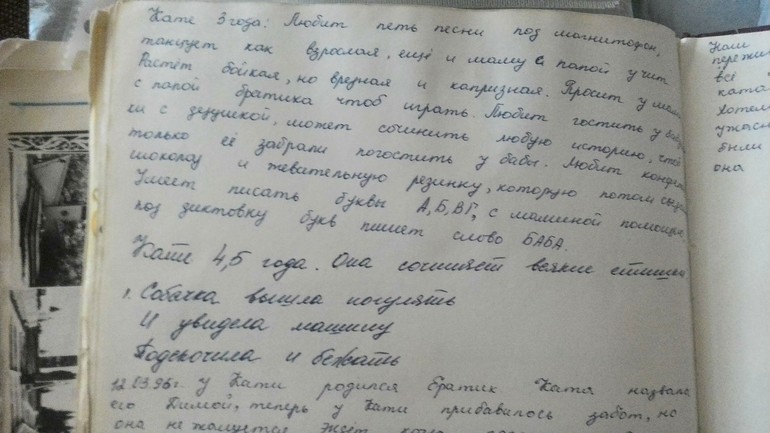 Кате 3 года: Любит петь песни под магнитофон,
танцует как взрослая, ещё и маму с папой учит
Растёт бойкая, но вредная и капризная. Просит у мамы
с папой братика чтоб играть. Любит гостить у бабу
ли с дедушкой, может сочинить любую историю, чтоб
только её забрали погостить у бабы. Любит конфеты
шоколад и жевательную резинку, которую потом
Умеет писать буквы А, Б, В Г, с маминой помощью,
под диктовку букв пишет слово БАБА.
Кате 4,5 года. Она сочиняет всякие стишки
1. Собачка вышла погулять
И увидела машину
Подскочила и бежать
12.03.96г. у Кати родился братик Катя назвала
его Димой, теперь у Кати прибавилось забот, но
она не жалуется Ждёт когда
Каши
пережи
всё
ката
хотел
ужасн
были
она